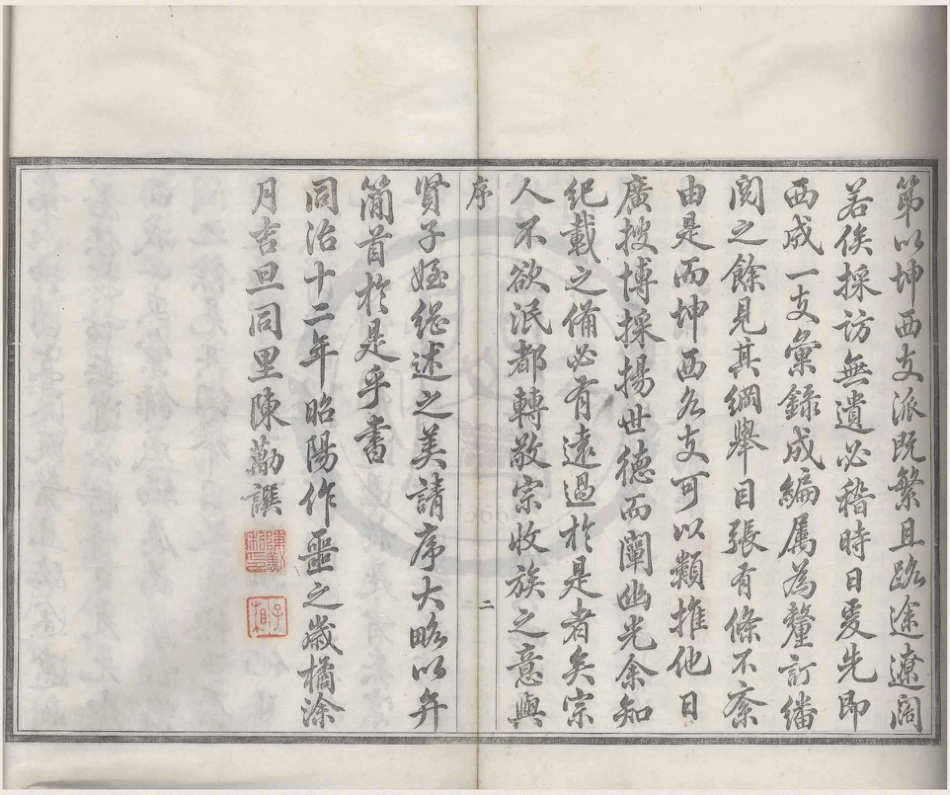 第以坤西支派既繁且路途遼闊
若俟採訪無遺必稽時日爰先即
西成一支彙錄成編屬為釐訂繙
閱之餘見其綱舉目張有條不紊
由是而坤西各支可以類推他日
廣搜博採揚世德而闡幽光余知
紀載之備必有遠過於是者矣宗
人不欲泯都轉敬宗收族之意與
序
二
賢子姪繼述之美請序大略以弁
簡首於是乎書
同治十二年昭陽作噩之歲橘涂
月吉旦同里陳勱譔